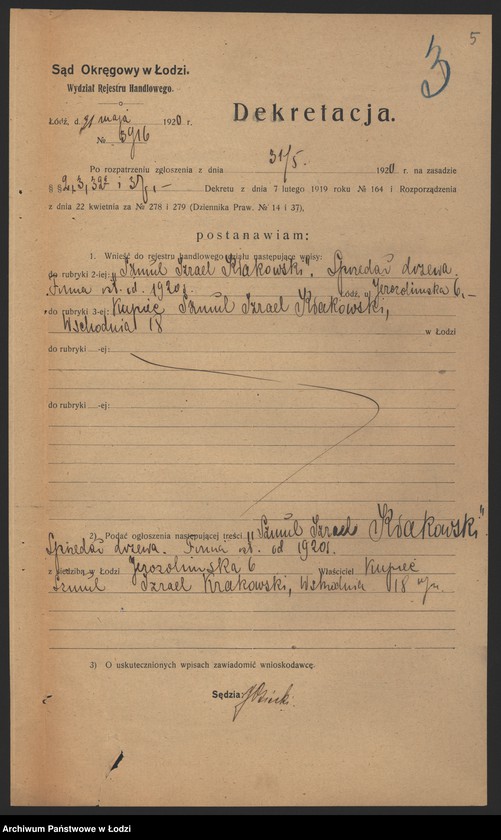 5
3
Sąd Okręgowy w Łodzi.
Wydział Rejestru Handlowego.
Łódź, d. 31 maja 1920 r.
№ 5916
Dekretacja.
Po rozpatrzeniu zgłoszenia z dnia 31/5. 1920 r. na zasadzie
§ § 2, 3, 32 i 37 Dekretu z dnia 7 lutego 1919 roku № 164 i Rozporządzenia
z dnia 22 kwietnia za № 278 i 279 (Dziennika Praw. № 14 i 37),
postanawiam:
1. Wnieść do rejestru handlowego działu następujące wpisy:
do rubryki 2-iej: „Szmul Izrael Krakowski". Sprzedaż drzewa.
Firma istn. od 1920 r. Łódź, ul Jerozolimska 6,—
do rubryki 3-ej: Kupiec Szmul Izrael Krakowski,
Wschodnia 18 w Łodzi
do rubryki ....-ej:
do rubryki ....-ej:
2) Podać ogłoszenia następującej treści: „Szmul Izrael Krakowski"
Sprzedaż drzewa. Firma istn. od 1920 r.
z siedzibą w Łodzi Jerozolimska 6 Właściciel Kupiec
Szmul Izrael Krakowski, Wschodnia 18
3) O uskutecznionych wpisach zawiadomić wnioskodawcę.
Sędzia:
Archiwum Państwowe w Łodzi